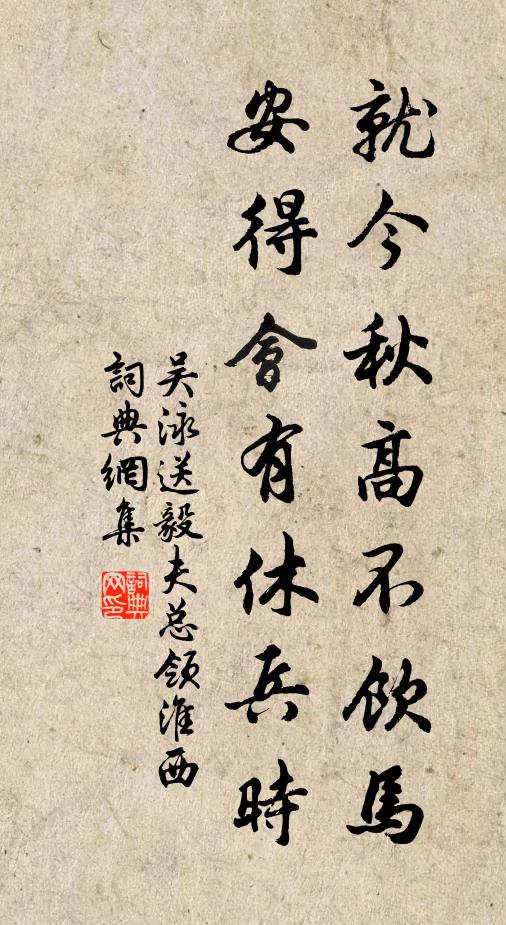 就今秋高不飲馬
安得會有休兵時
吴泳送毅夫总領淮西
詞典網集
詞典
网印